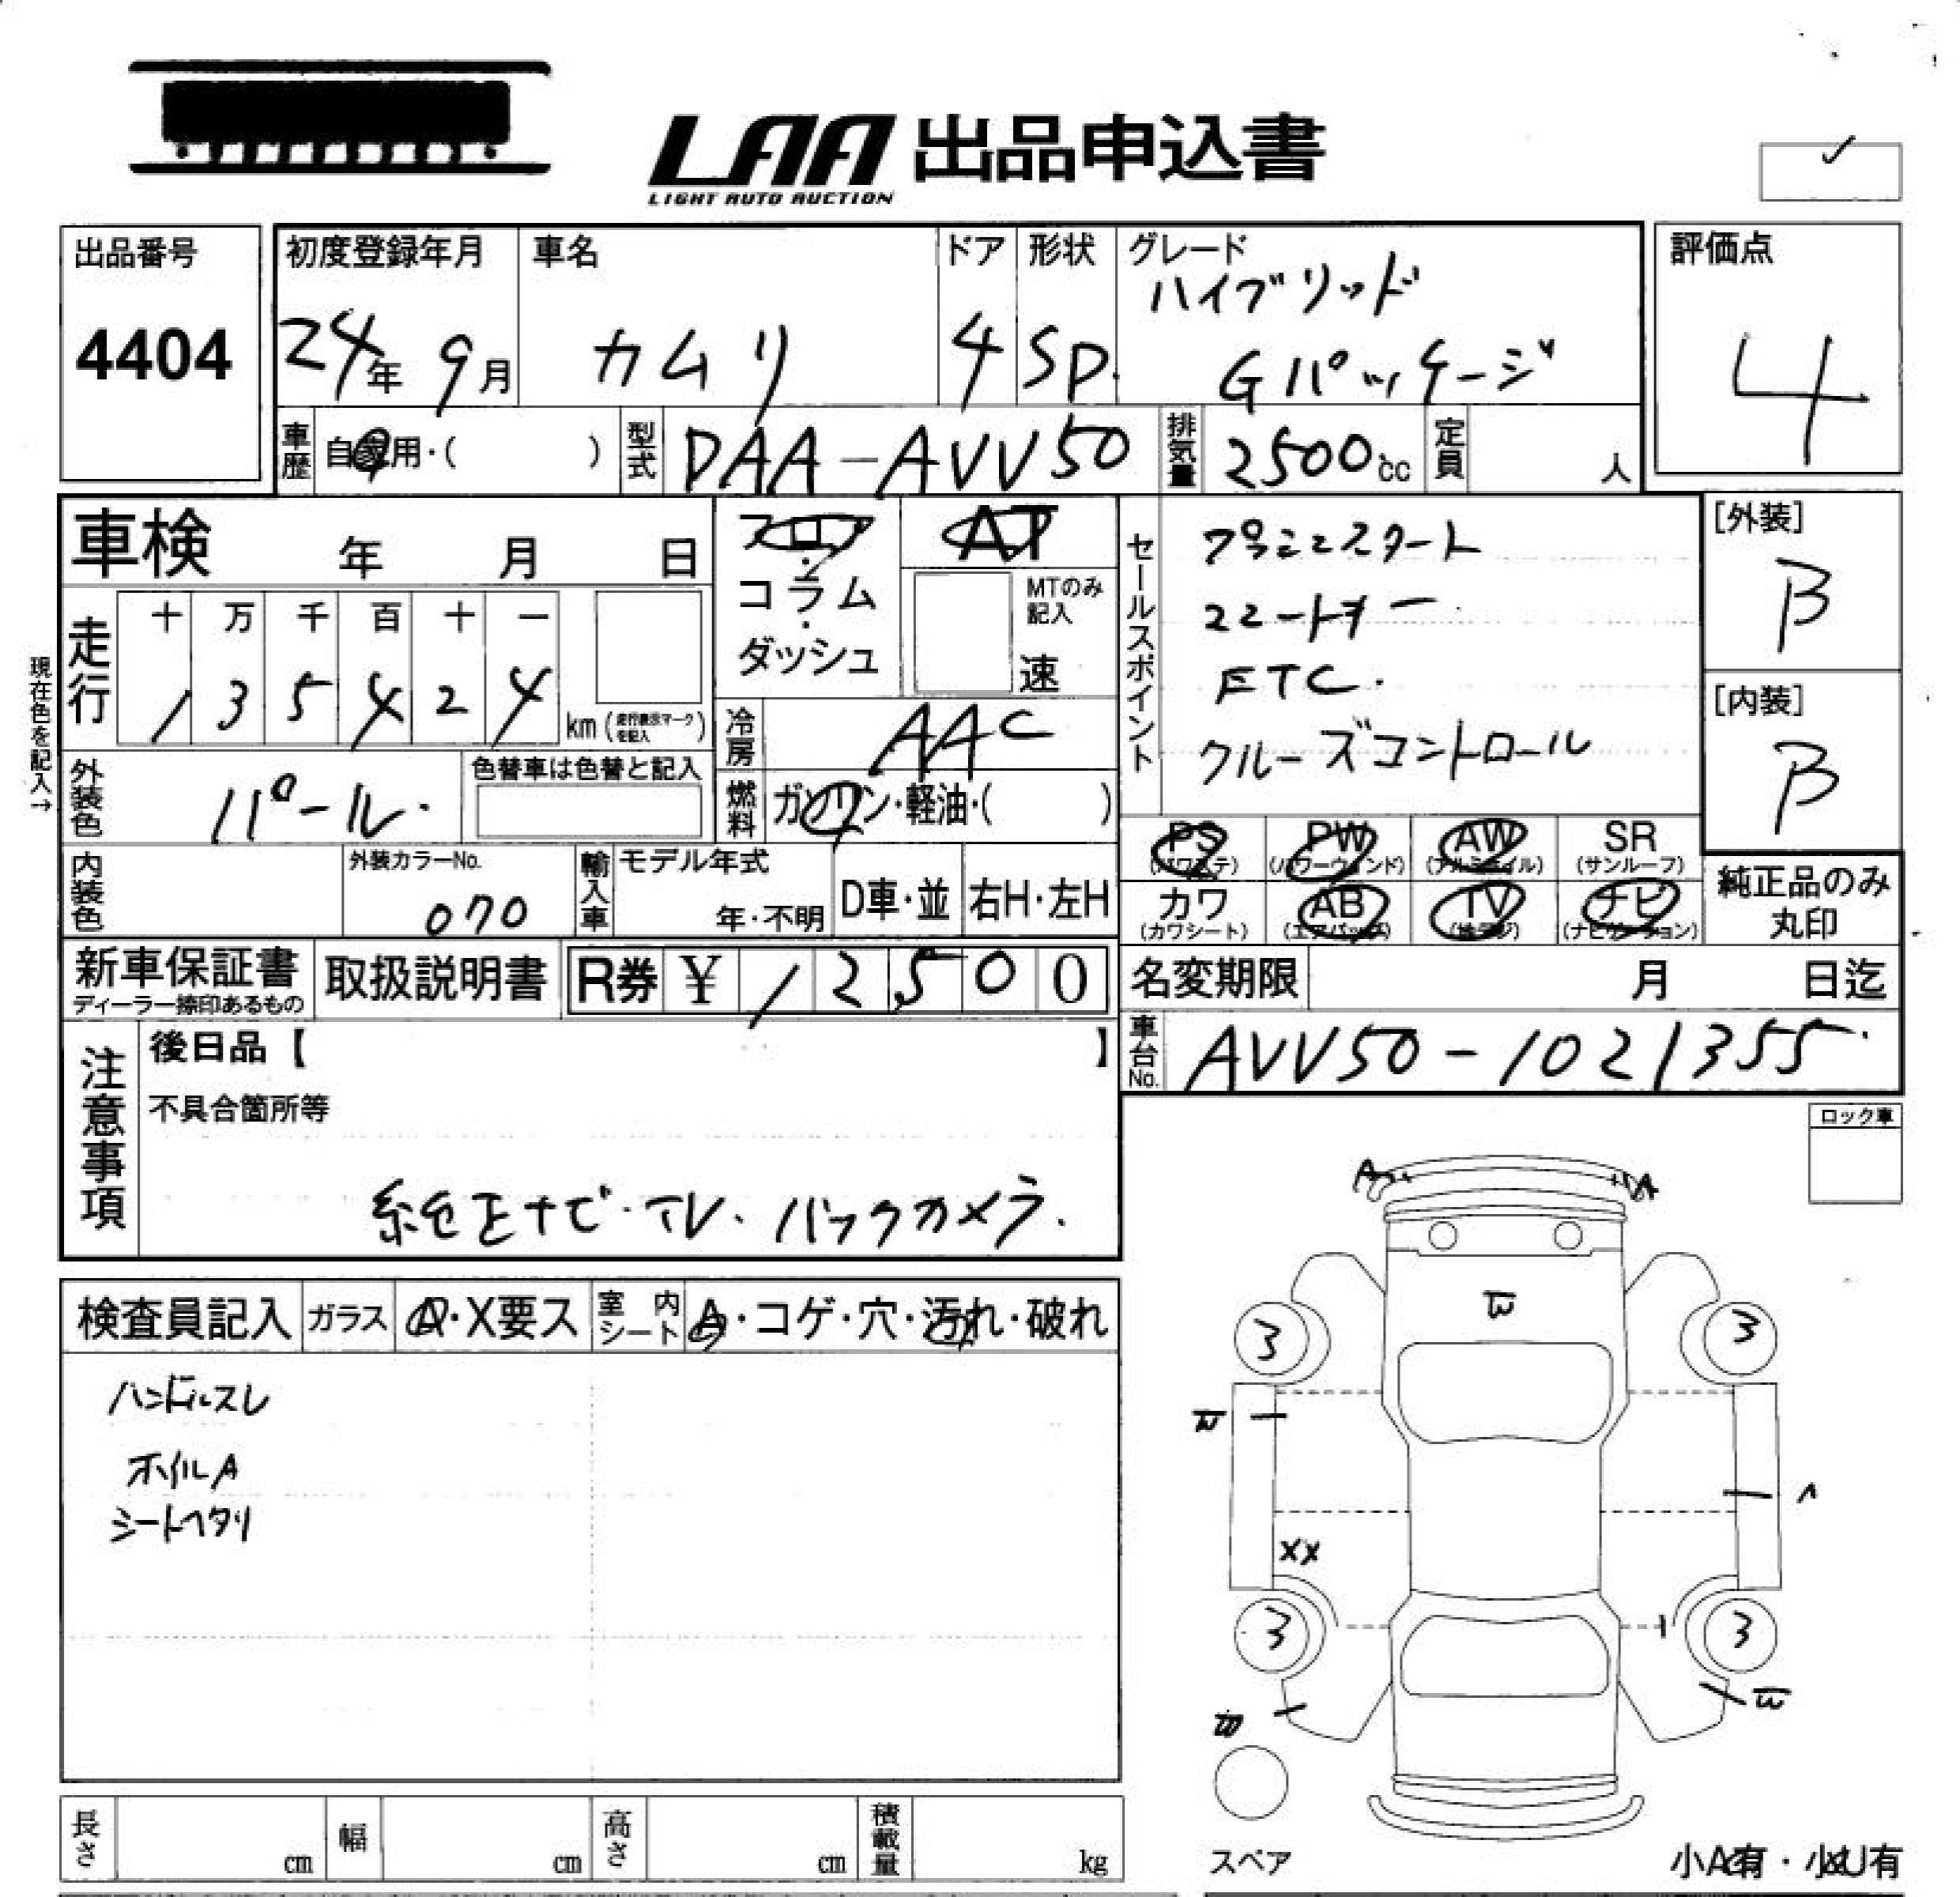 LAA 出品申込書
LIGHT AUTO AUCTION
出品番号
4404
初度登録年月
24年 9月
車名
カムリ
ドア
4
形状
SD.
グレード
ハイブリッド
Gパッケージ
評価点
4
車歴
自家用・( )
型式
DAA-AVV50
排気量
2500cc
定員
人
車検 年 月 日
フロア・コラム・ダッシュ
AT
MTのみ記入
速
セールスポイント
プッシュスタート
スマートキー
ETC.
クルーズコントロール
[外装]
B
[内装]
B
現在色を記入→
走行
十 万 千 百 十 一
1 3 5 4 2 4
km (走行表示マークを記入)
冷房
AAC
外装色
パール.
色替車は色替と記入
燃料
ガソリン・軽油・( )
PS
(パワステ)
PW
(パワーウィンド)
AW
(アルミホイル)
SR
(サンルーフ)
カワ
(カワシート)
AB
(エアバッグ)
TV
(地デジ)
ナビ
(ナビゲーション)
純正品のみ
丸印
内装色
外装カラーNo.
070
輸入車
モデル年式
年・不明
D車・並
右H・左H
新車保証書
ディーラー捺印あるもの
取扱説明書
R券 ¥ 1 2 5 0 0
名変期限 月 日迄
車台No.
AVV50-1021355.
注意事項
後日品【 】
不具合箇所等
純正ナビ・TV・バックカメラ.
ロック車
検査員記入
ガラス
A・X要ス
室内シート
A・コゲ・穴・汚れ・破れ
ハンドルスレ
ホイルA
シートヘタリ
A
A
3
3
XX
3
3
長さ cm
幅 cm
高さ cm
積載量 kg
スペア
小A有・小U有